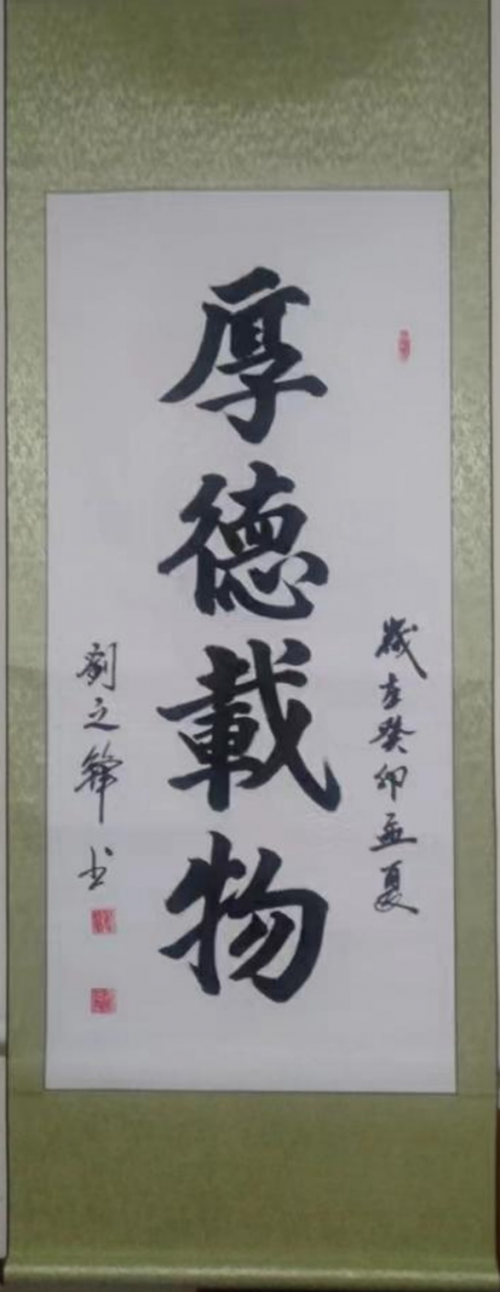 厚德載物
歲在癸卯孟夏
劉之鋒书